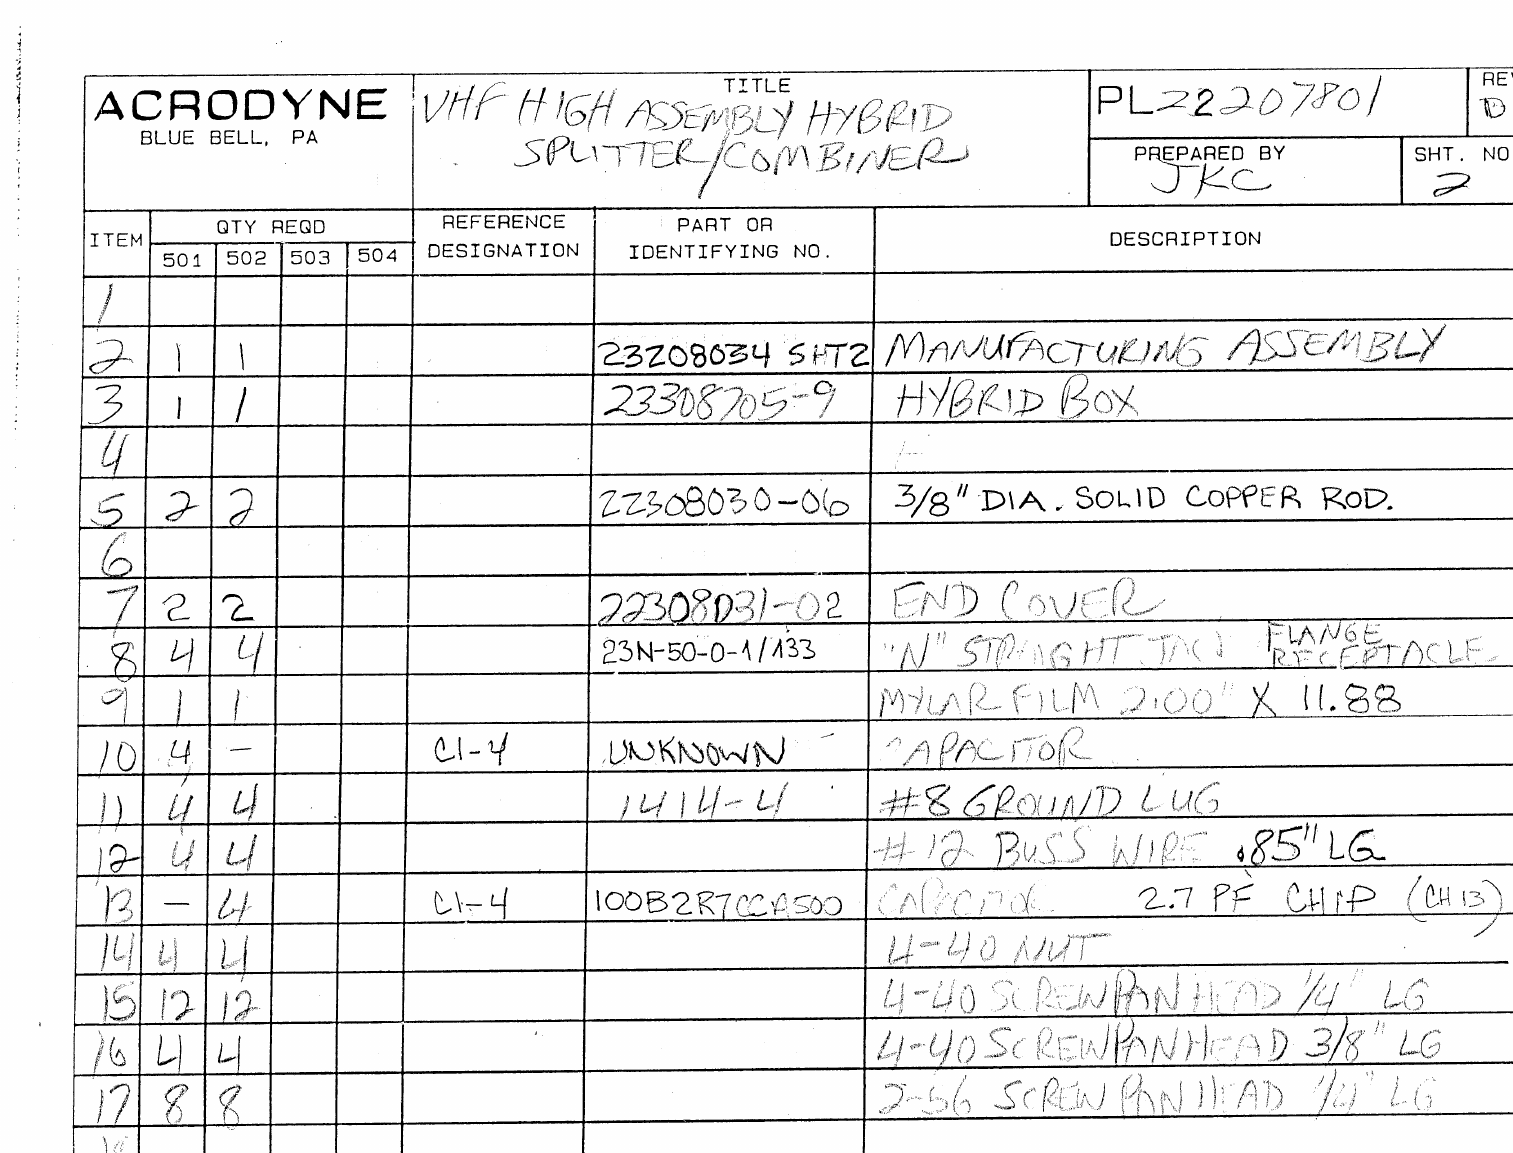 ACRODYNE
BLUE BELL, PA
TITLE
VHF HIGH ASSEMBLY HYBRID
SPLITTER/COMBINER
PL22207801
REV
D
PREPARED BY
JKC
SHT. NO
2
ITEM
QTY REQD
501 502 503 504
REFERENCE
DESIGNATION
PART OR
IDENTIFYING NO.
DESCRIPTION
1
2 1 1 23208034 SHT2 MANUFACTURING ASSEMBLY
3 1 1 23308705-9 HYBRID BOX
4
5 2 2 22308030-06 3/8" DIA. SOLID COPPER ROD.
6
7 2 2 22308031-02 END COVER
8 4 4 23N-50-0-1/133 "N" STRAIGHT FLANGE
RECEPTACLE
9 1 1 MYLAR FILM 2.00" X 11.88
10 4 - C1-4 UNKNOWN CAPACITOR
11 4 4 1414-4 #8 GROUND LUG
12 4 4 #12 BUSS WIRE .85" LG
13 - 4 C1-4 100B2R7CCA500 CAPACITOR 2.7 PF CHIP (CH 13)
14 4 4 4-40 NUT
15 12 12 4-40 SCREW PAN HEAD 1/4" LG
16 4 4 4-40 SCREW PAN HEAD 3/8" LG
17 8 8 2-56 SCREW PAN HEAD 1/4" LG